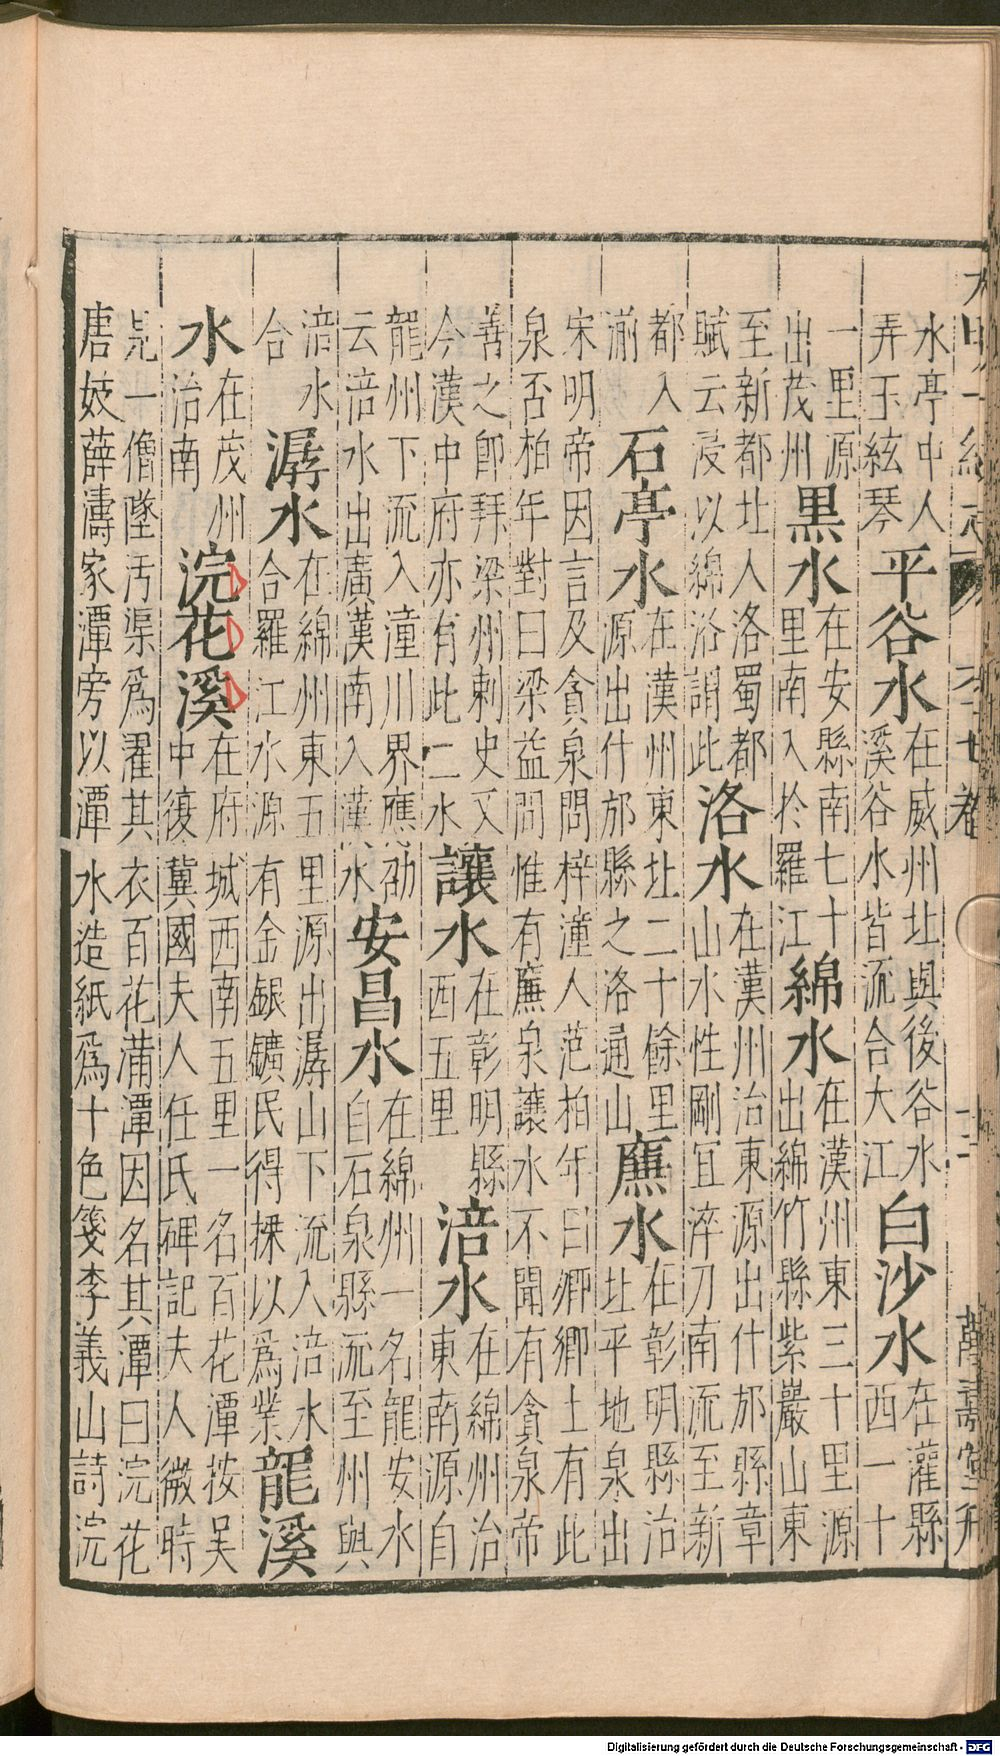 大明一統志 六十七卷 十二 萬壽堂刊
水亭中人弄玉絃琴 平谷水 在威州北與後谷水溪谷水皆流合大江 白沙水 在灌縣西一十
一里源出茂州 黑水 在安縣南七十里南入於羅江 綿水 在漢州東三十里源出綿竹縣紫巖山東
至新都北入洛蜀都賦云浸以綿洛謂此 洛水 在漢州治東源出什邡縣章山水性剛宜淬刀南流至新
都入湔 石亭水 在漢州東北二十餘里源出什邡縣之洛通山 廉水 在彰明縣治北平地泉出
宋明帝因言及貪泉問梓潼人范柏年曰卿鄉土有此
泉否柏年對曰梁益間惟有廉泉讓水不聞有貪泉帝
善之即拜梁州刺史又今漢中府亦有此二水 讓水 在彰明縣西五里 涪水 在綿州治東南源自
龍州下流入潼川界應劭云涪水出廣漢南入漢水 安昌水 在綿州一名龍安水自石泉縣流至州與
涪水合 潺水 在綿州東五里源出潺山下流入涪水合羅江水源有金銀鑛民得採以爲業 龍溪
水 在茂州治南 浣花溪 在府城西南五里一名百花潭按吴中復冀國夫人任氏碑記夫人微時
見一僧墜汚渠爲濯其衣百花滿潭因名其潭曰浣花
唐妓薛濤家潭旁以潭水造紙爲十色箋李義山詩浣
Digitalisierung gefördert durch die Deutsche Forschungsgemeinschaft - DFG